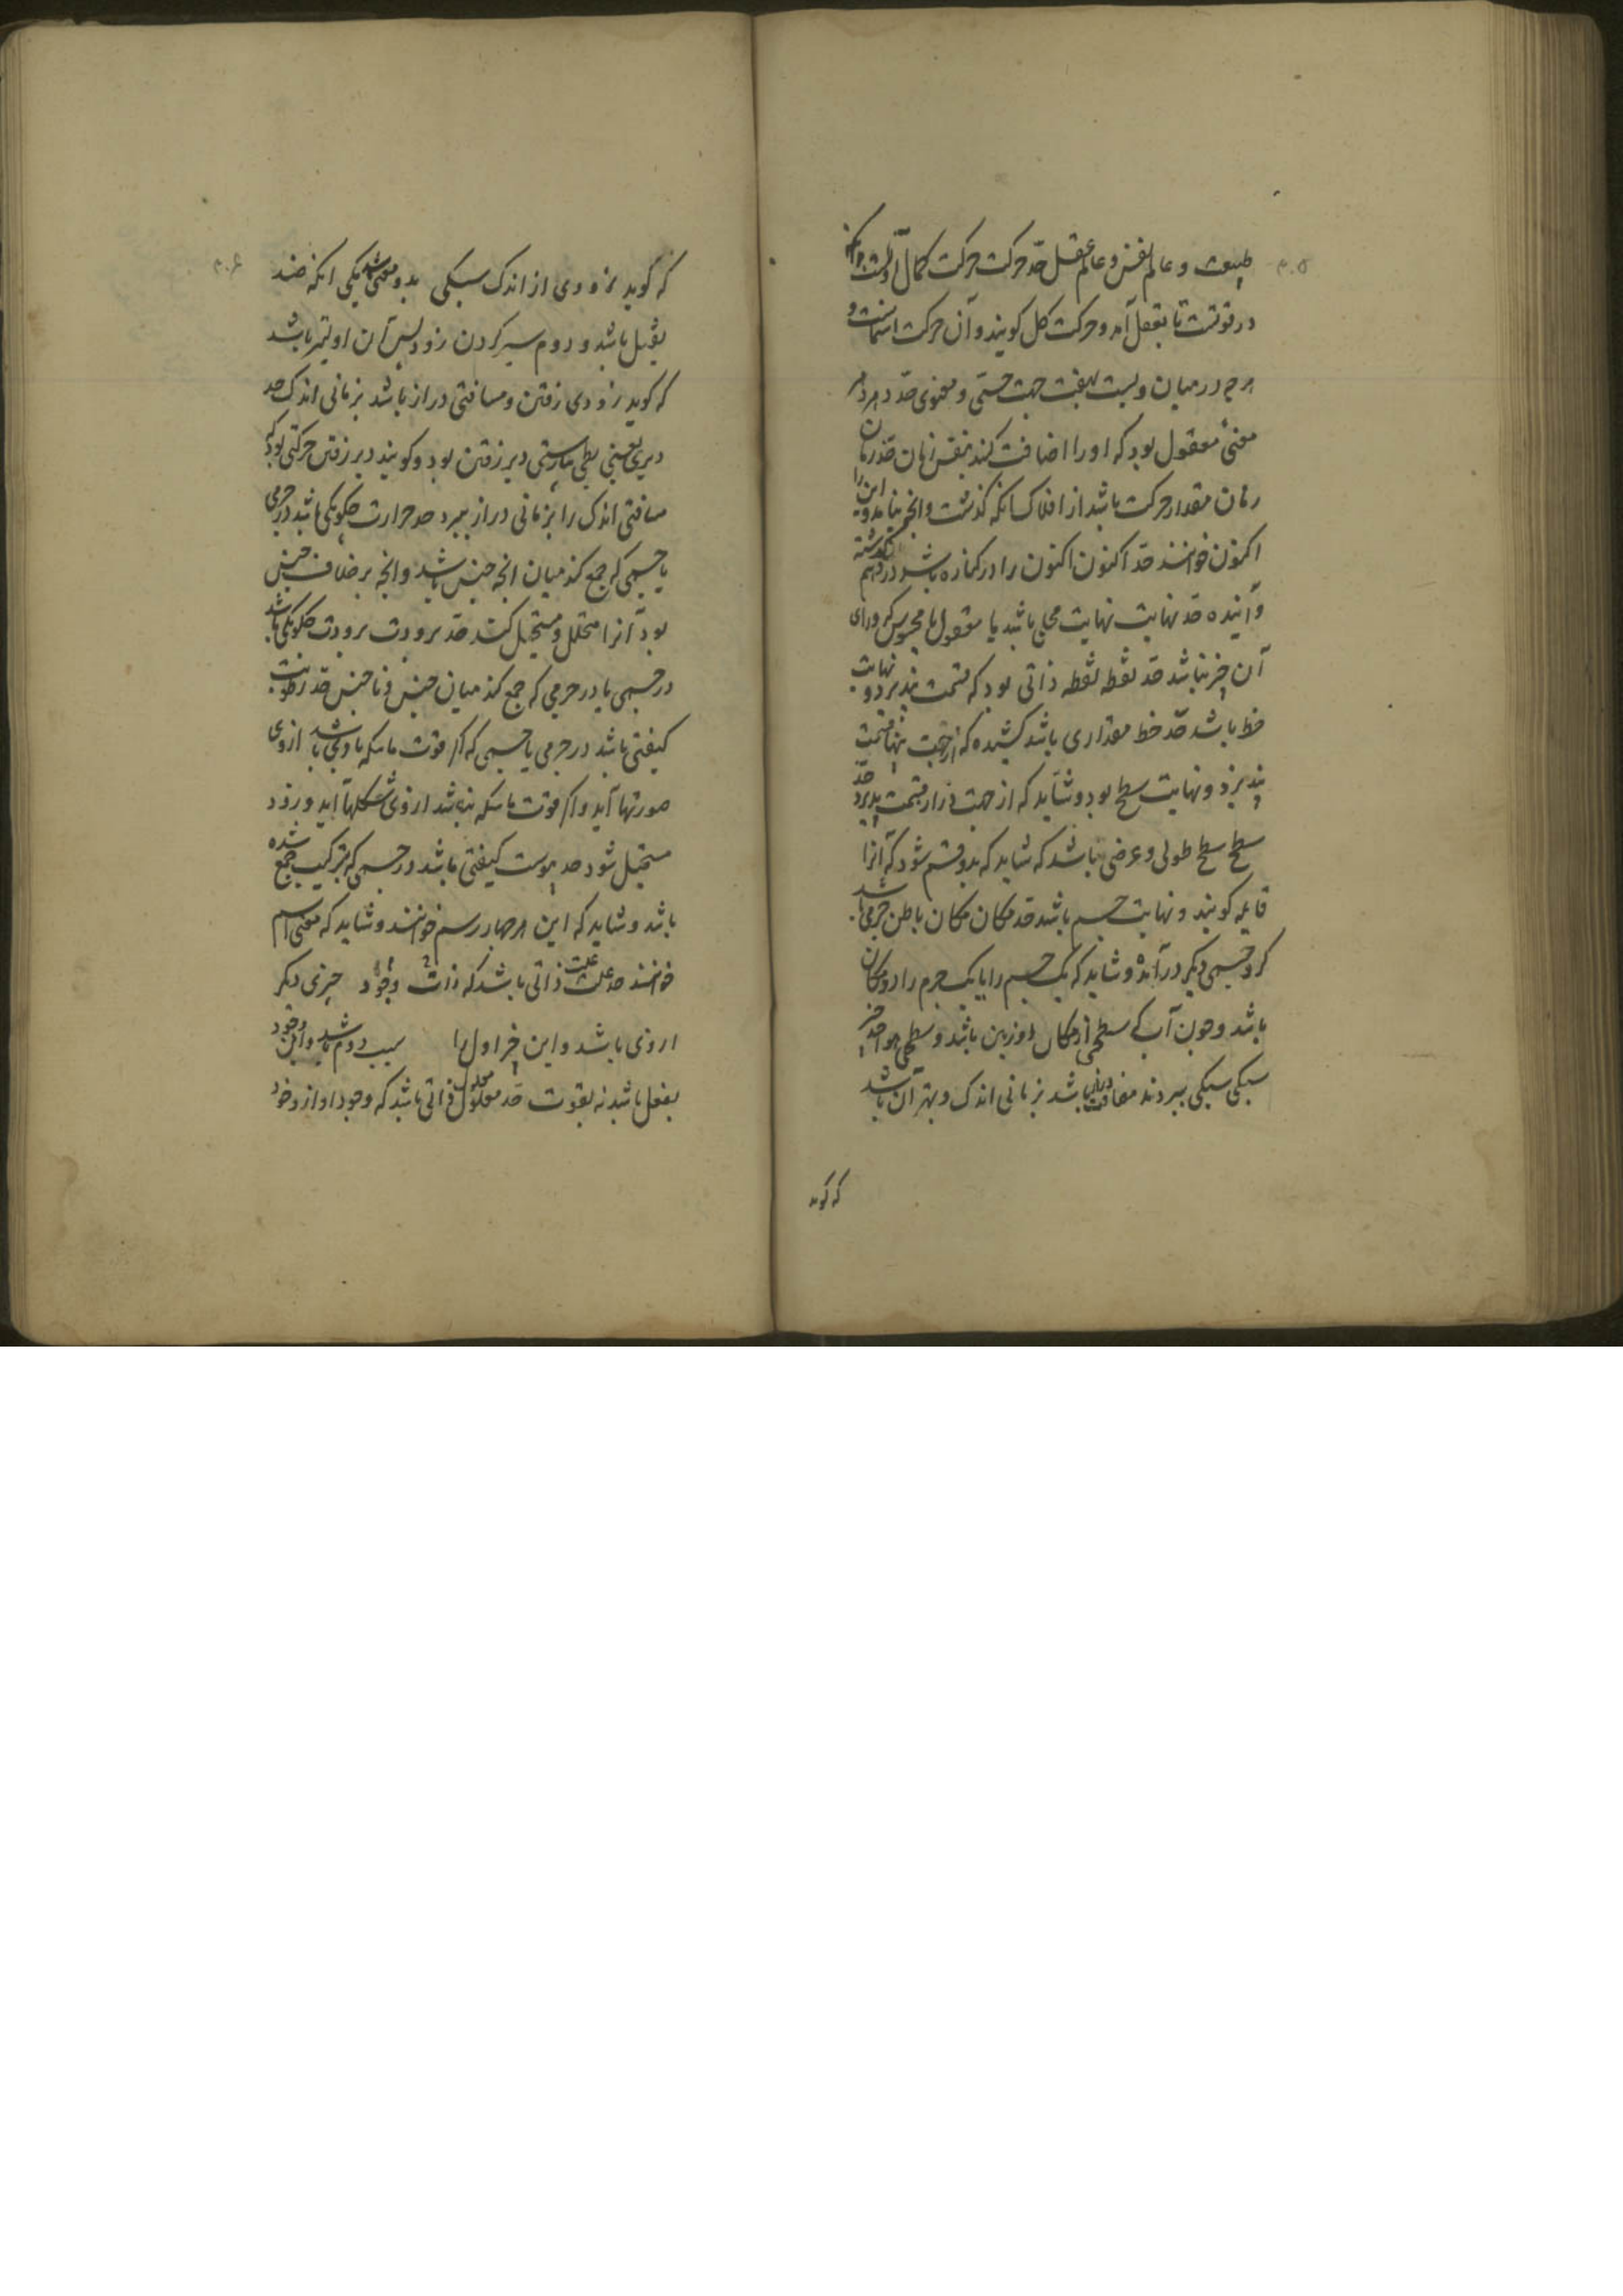 طبیعت و عالم نفس و عالم عقل حد حرکت حرکت کمال اولست
در قوتست تا بفعل آمد و حرکت کل کویند و آن حرکت است و
هرچه در میان ویست بهفت جهت حسی و معنوی حد
معنی معقول بود که او را اضافت کنند بنفس زمان حد زمان
زمان مقدار حرکت باشد از افلاک سانکه گذشت وانچه این را
اکنون خوانند حد اکنون اکنون را در کناره باشد در وهم گذشته
و آینده حد نهایت نهایت باشد یا معقول یا محسوس که ورای
آن چیز نباشد حد نقطه نقطه ذاتی بود که قسمت نپذیرد و نهایت
خط باشد حد خط مقداری باشد کشیده که از جهت پهنا قسمت
نپذیرد و نهایت سطح بود و شاید که از جهت دراز قسمت پذیرد حد
سطح سطح طولی و عرضی باشد که شاید که بدو قسم شود که آنرا
قایمه کویند و نهایت جسم باشد حد مکان مکان باطن جرمی باشد
کرد جسمی دیکر درآمده و شاید که یک جسم را یا یک جرم را دو مکان
باشد و چون آب که سطحی از مکان او زمین باشد و سطحی هوا حد
سبکی سبکی باشد بزمانی اندک و بهتر آن باشد
که کوید
که کوید زودی از اندک سبکی بدو معنی باشد یکی آنکه ضد
ثقیل باشد و دوم سیر کردن زود پس آن اولیتر باشد
که کوید زودی رفتن و مسافتی دراز باشد بزمانی اندک حد
دیری یعنی بطی دیر رفتن بود و کویند دیر رفتن حرکتی بود که
مسافتی اندک را بزمانی دراز ببرد حد حرارت باشد در جرمی
یا جسمی که جمع کند میان انچه جنس باشد و انچه بر خلاف جنس
بود آنرا متخلل و مستحیل کند حد برودت برودت باشد
در جسمی یا در جرمی که جمع کند میان جنس و نا جنس حد رطوبت
کیفتی باشد در جرمی یا جسمی که اکر قوت ماسکه با وی باشد ازوی
صورتها آید و اکر قوت ماسکه نباشد ازوی شکلها آید و زود
مستحیل شود حد یبوست کیفتی باشد در جسمی که بترکیب جمع شده
باشد و شاید که این هر چهار رسم خوانند و شاید که معنی اسم
خوانند حد علت علت ذاتی باشد که ذات وجود چیزی دیکر
ازوی باشد و این چیز اول را سبب دوم باشد و این وجود
بفعل باشد نه بقوت حد معلول معلول ذاتی باشد که وجود او از وجود